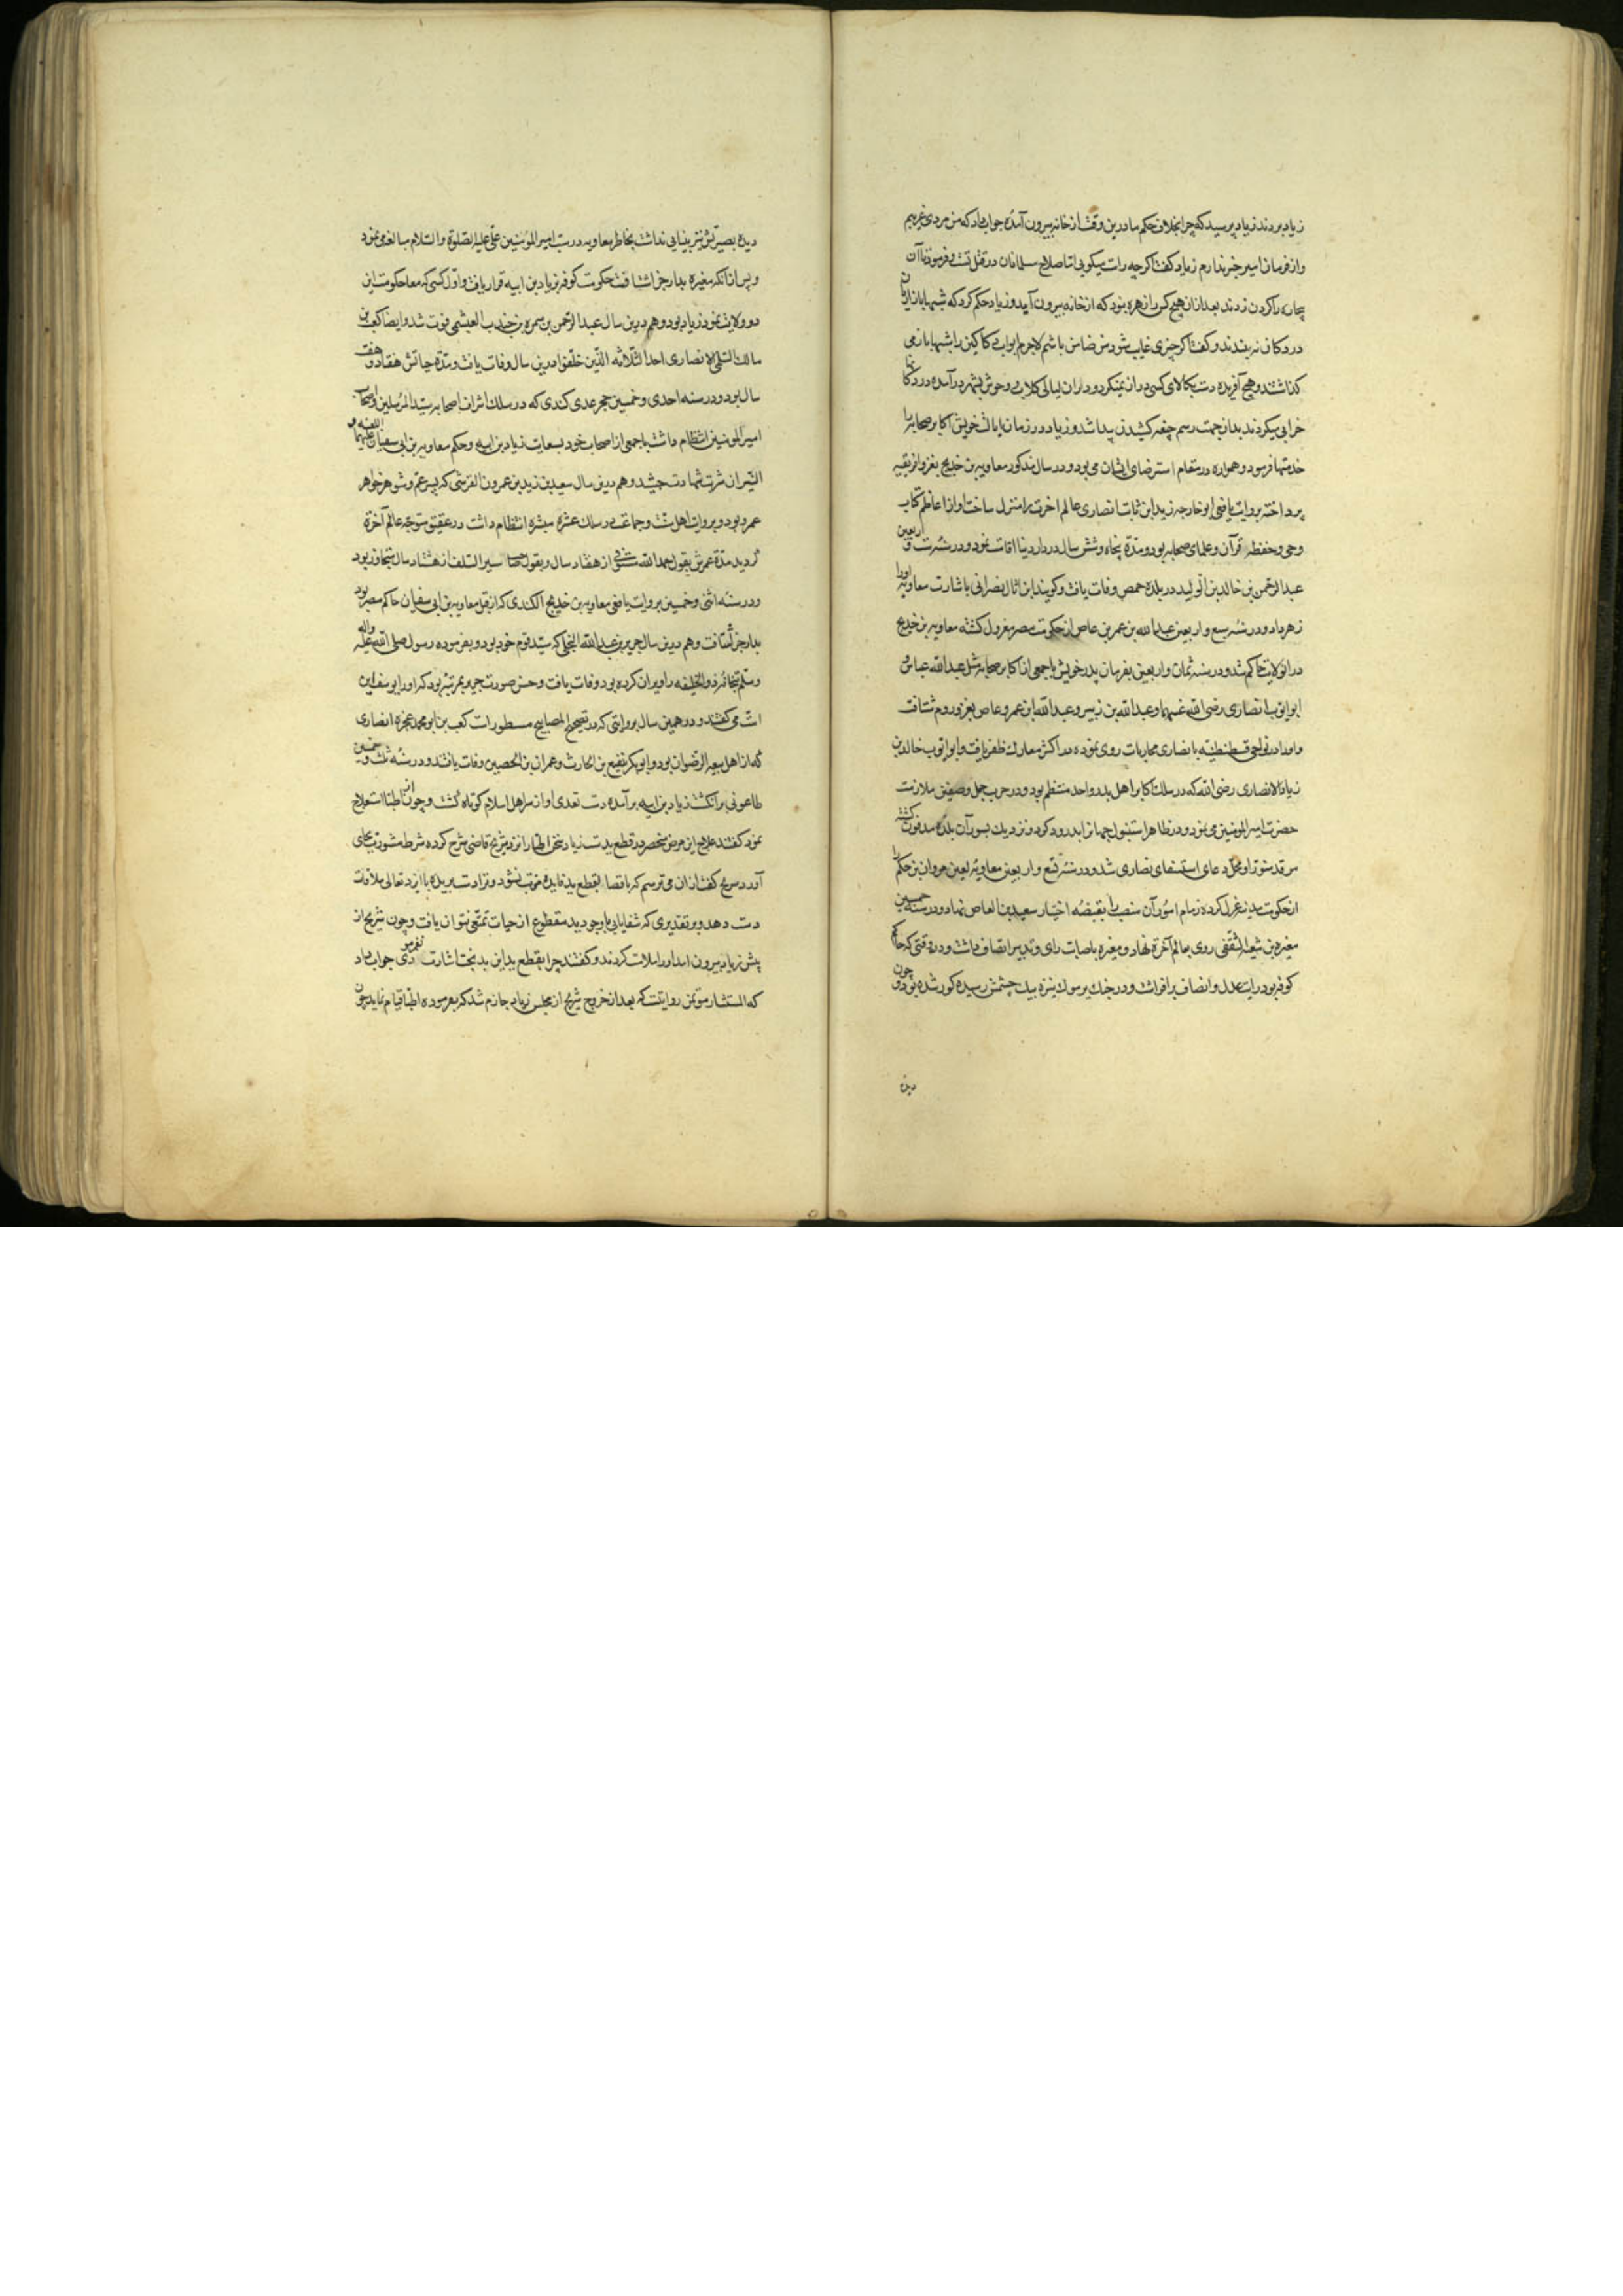 زیاد بردند زیاد پرسید که چرا بخلاف حکم ما درین وقت از خانه بیرون آمدهٔ جواب داد که من مردی غریبم
و از فرمان امیر خبر ندارم زیاد کفت اکرچه راست میکویی اما صلاح مسلمانان در قتل تست و فرمود تا آن
بیچاره را کردن زدند بعد ازان هیچ کس را زهره نبود که از خانه بیرون آید و زیاد حکم کرد که شبها بازاریان
در دکان نه بندند و کفت اکر چیزی غایب شود من ضامن باشم لاجرم ابواب دکاکین را شبها باز می
کذاشتند و هیچ آفریده دست بکالای کسی دراز نمیکرد و دران لیالی کلاب و وحوش بشهر درآمده در دکانها
خرابی میکردند بدان جهت رسم چغه کشیدن پیدا شد و زیاد در زمان ایالت خویش اکابر صحابه را
خدمتها فرمود و همواره در مقام استرضای ایشان می بود و در سال مذکور معاویه بن خدیج بغزو افریقیه
پرداخته بروایت یافعی ابو خارجه زید ابن ثابت انصاری عالم اخرت را منزل ساخت و او از اعاظم کتاب
وحی و حفظهٔ قرآن و علمای صحابه بود و مدة پنجاه و شش سال در دار دنیا اقامت نمود و در سنهٔ ست و اربعین
عبد الرحمن بن خالد بن الولید در بلدهٔ حمص وفات یافت و کویند ابن اثال نصرانی باشارت معاویه اورا
زهر داد و در سنهٔ سبع و اربعین عبد الله بن عمر بن عاص از حکومت مصر معزول کشته معاویه بن خدیج
در ان ولایت حاکم شد و در سنه ثمان و اربعین بفرمان پدر خویش با جمعی از اکابر صحابه مثل عبد الله عباس و
ابو ایوب انصاری رضی الله عنهما و عبد الله بن زبیر و عبد الله ابن عمرو عاص بغزو روم شتافت
و او را در نواحی قسطنطنیه با نصاری محاربات روی نموده در اکثر معارک ظفر یافت و ابو ایوب خالد بن
زید الانصاری رضی الله که در سلک اکابر اهل بدر و احد منتظم بود و در حرب جمل و صفین ملازمت
حضرت امیر المومنین می نمود و در ظاهر استنبول جهانرا بدرود کرد و نزدیک بسور آن بلده مدفون کشته
مرقد منور او محل دعای استسقای نصاری شد و در سنهٔ تسع و اربعین معاویهٔ لعین مروان بن حکم را
از حکومت مدینه عزل کرده زمام امور آن منصب را بقبضهٔ اختیار سعید بن العاص نهاد و در سنهٔ خمسین
مغیره بن شعبه الثقفی روی بعالم آخرة نهاد و مغیره باصابت رای و تدبیر اتصاف داشت و در وقتی که حاکم
کوفه بود رایت عدل و انصاف برافراشت و در جنک یرموک نیزه بیک چشمش رسیده کور شده بود و چون
دیدهٔ
دیدهٔ بصیرتش نیز بینایی نداشت بخاطر معاویه در سب امیر المومنین علی علیه الصلوة و السلام مبالغه می نمود
و پس از انکه مغیره بدار جزا شتافت حکومت کوفه نیز بزیاد بن ابیه قرار یافت و اول کسی که معا حکومت این
دو ولایت نمود زیاد بود و هم درین سال عبد الرحمن بن سمره بن جندب العبشمی فوت شد و ایضا کعب بن
مالک السلمی الانصاری احد الثلاثه الذین خلفوا درین سال وفات یافت و مدة حیاتش هفتاد و هفت
سال بود و در سنه احدی و خمسین حجر عدی کندی که در سلک اشراف اصحاب سید المرسلین و اصحاب
امیر المومنین انتظام داشت با جمعی از اصحاب خود بسعایت زیاد بن ابیه و حکم معاویه بن ابی سفیان علیهما اللعنه و
النیران شربت شهادت چشید و هم درین سال سعید بن زید بن عمرو ن القرشی که پسر عم و شوهر خواهر
عمر بود و بروایت اهل سنت و جماعت در سلک عشرهٔ مبشره انتظام داشت در عقیق متوجه عالم آخرة
کردید مدة عمرش بقول حمد الله مستوفی از هفتاد سال و بقول صاحب سیر السلف از هشتاد سال متجاوز بود
و در سنه اثنی و خمسین بروایت یافعی معاویه بن خدیج الکندی که از قبل معاویه بن ابی سفیان حاکم مصر بود
بدار جزا شتافت و هم درین سال جریر بن عبد الله البجلی که سید قوم خود بود و بفرموده رسول صلی الله علیه واله
و سلم بتخانهٔ ذو الخلیفه را ویران کرده بود وفات یافت و حسن صورت جریر بمرتبهٔ بود که اورا یوسف این
امت می کفتند و در همین سال بروایتی که در تصحیح المصابیح مسطورست کعب بن ابو محمد عجزه انصاری
که از اهل بیعه الرضوان بود و ابوبکر نفیع بن الحارث و عمران بن الحصین وفات یافتند و در سنهٔ ثلث و خمسین
طاعونی بر انکشت زیاد بن ابیه برآمده دست تعدی او از سر اهل اسلام کوتاه کشت و چون از اطبا استعلاج
نمود کفتند علاج این مرض منحصر در قطع ید ست زیاد سخن اطبا را نزد شریح قاضی شرح کرده شرط مشورت بجای
آورد شریح کفت ازان می ترسم که باقتصا بقطع ید فایده مترتب نشود و ترا دست بریده با ایزد تعالی ملاقات
دست دهد و بر تقدیری که شفا یابی با وجود ید مقطوع از حیات تمتعی نتوان یافت و چون شریح از
پیش زیاد بیرون امد اورا ملامت کردند و کفتند چرا بقطع ید این بد بخت اشارت نفرمودی جواب داد
که المستشار موتمن روایتست که بعد از خروج شریح از مجلس زیاد جازم شد که بفرموده اطبا قیام نماید چون